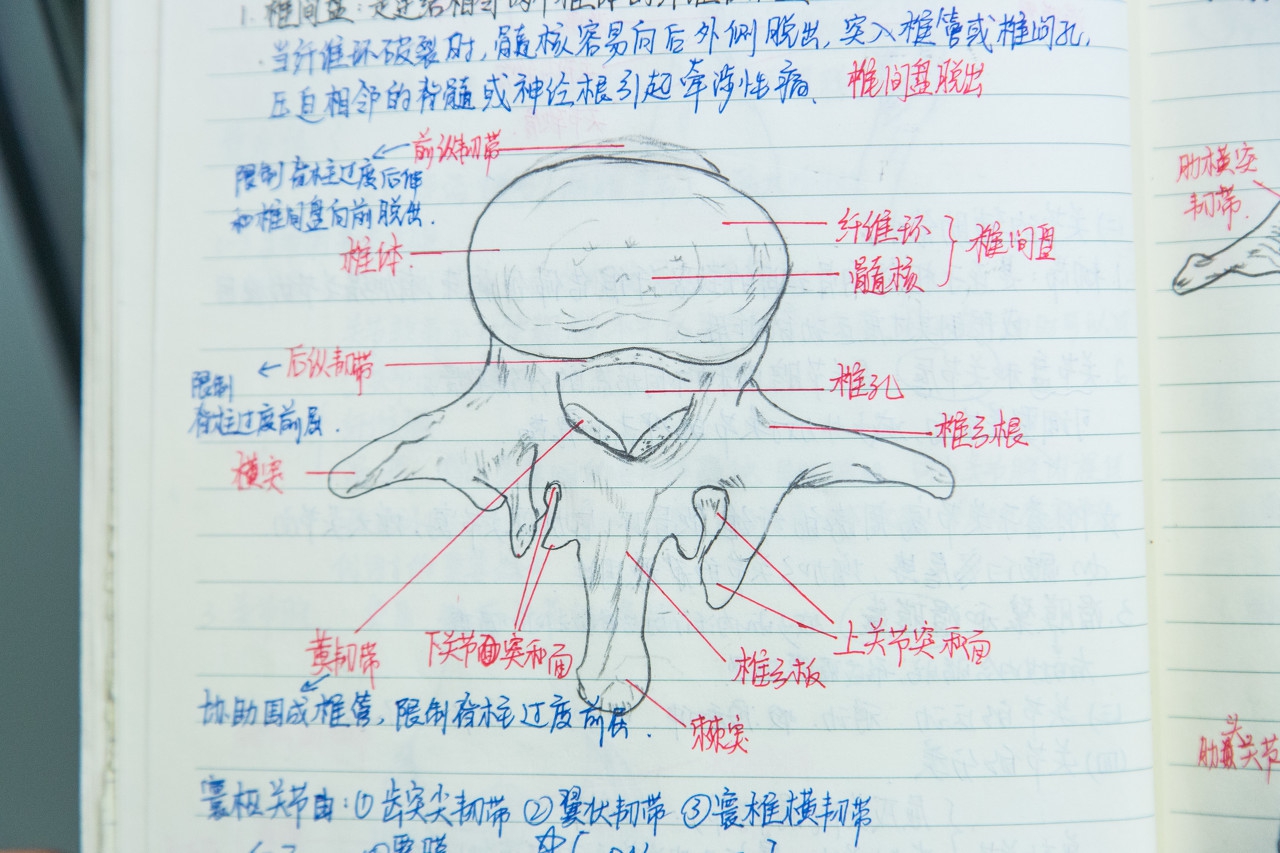 1. 椎间盘：是连结相邻两个椎体的纤维
当纤维环破裂时，髓核容易向后外侧脱出，突入椎管或椎间孔，
压迫相邻的脊髓或神经根引起牵涉性痛． 椎间盘脱出
前纵韧带
限制脊柱过度后伸
和椎间盘向前脱出．
椎体
纤维环
髓核
椎间盘
后纵韧带
限制
脊柱过度前屈．
椎孔
椎弓根
横突
黄韧带
下关节突和面
椎弓板
上关节突和面
协助围成椎管，限制脊柱过度前屈．
棘突
寰枢关节由：① 齿突尖韧带 ② 翼状韧带 ③ 寰椎横韧带
覆膜
肋横突
韧带．
肋头关节